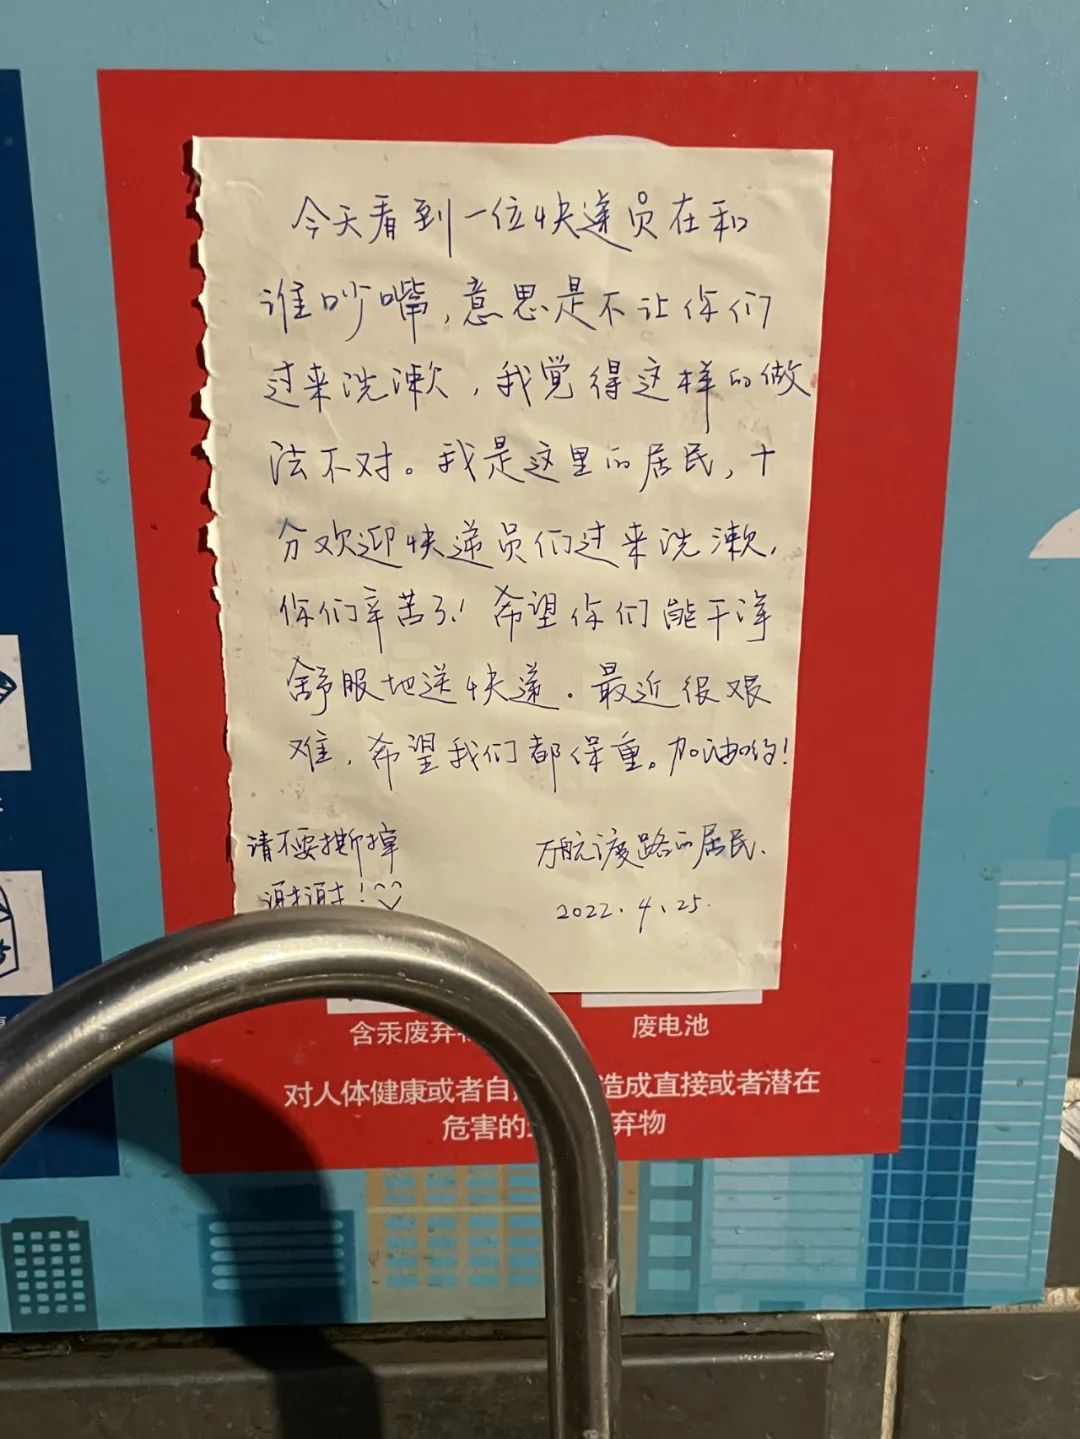 今天看到一位快递员在和
谁吵嘴，意思是不让你们
过来洗漱，我觉得这样的做
法不对。我是这里的居民，十
分欢迎快递员们过来洗漱，
你们辛苦了！希望你们能干净
舒服地送快递。最近很艰
难，希望我们都保重。加油哟！
请不要撕掉
谢谢！
万航渡路的居民.
2022.4.25.
含汞废弃
废电池
对人体健康或者自 造成直接或者潜在
危害的 弃物